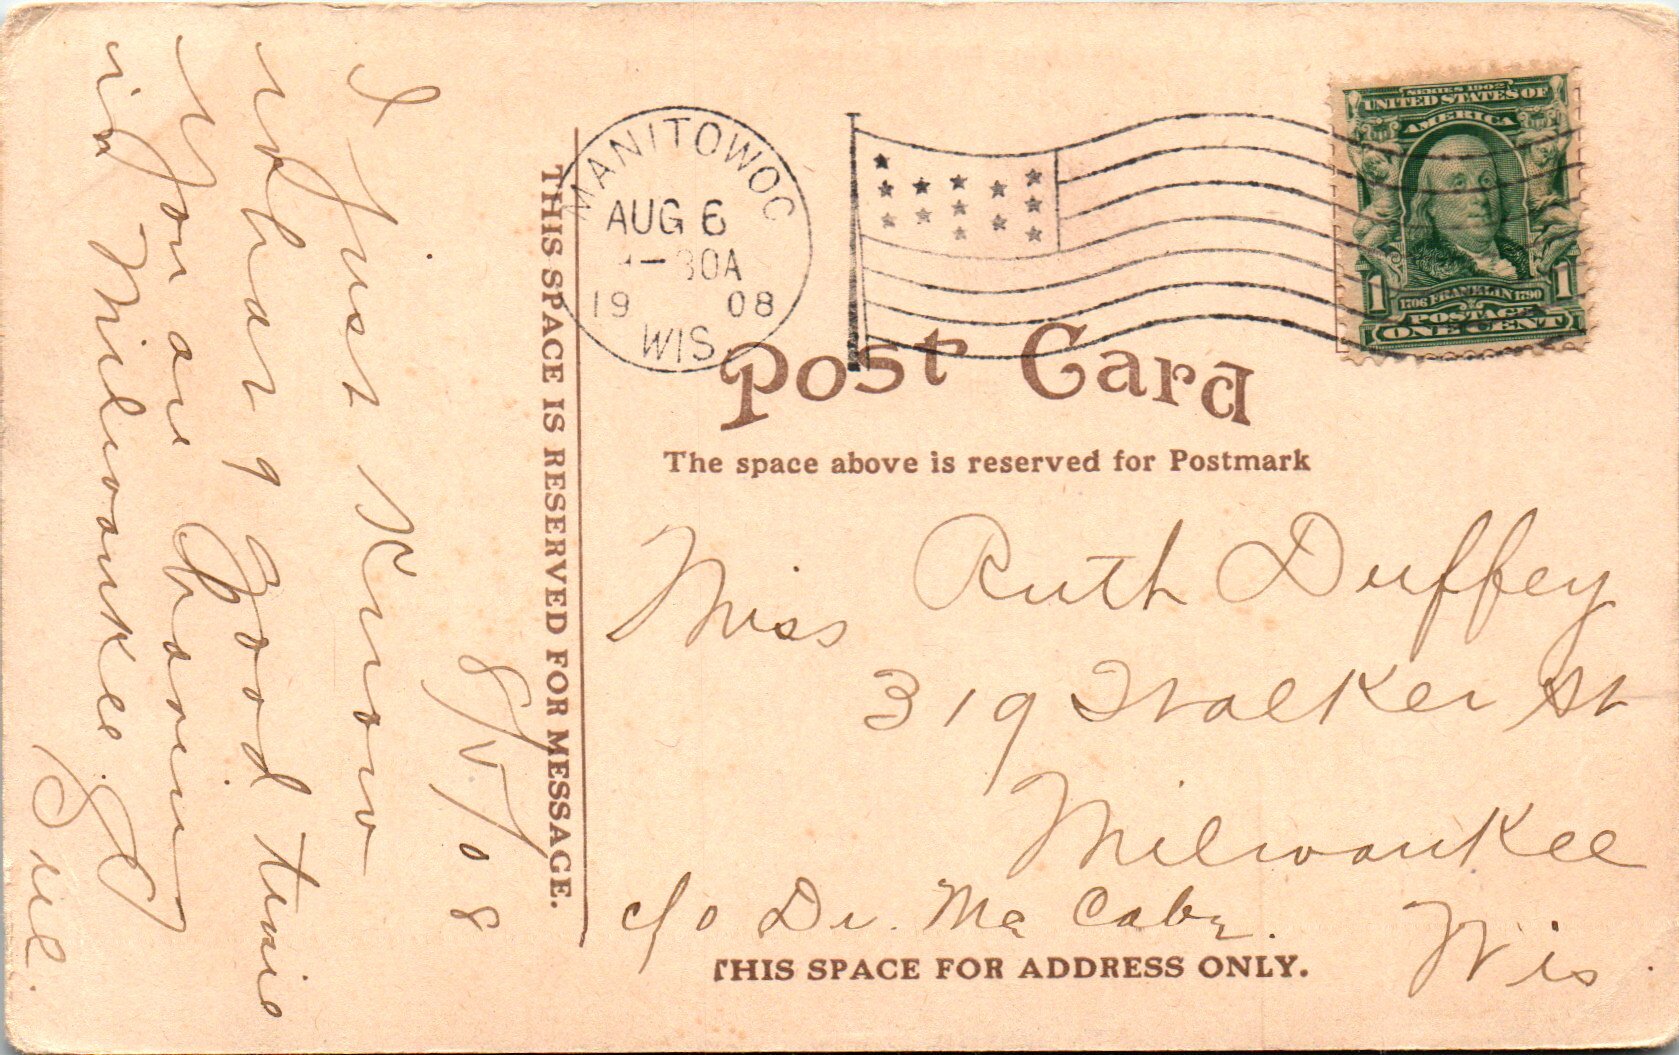 8/5/08
I just know
what a good time
you are having
in Milwaukee.
THIS SPACE IS RESERVED FOR MESSAGE.
MANITOWOC
AUG 6
30A
19 08
WIS
SERIES 1902
UNITED STATES OF
AMERICA
1706 FRANKLIN 1790
1 POSTAGE 1
ONE CENT
Post Card
The space above is reserved for Postmark
Miss Ruth Duffey
319 Walker St
Milwaukee
Wis
c/o Dr. Mc Caby.
THIS SPACE FOR ADDRESS ONLY.